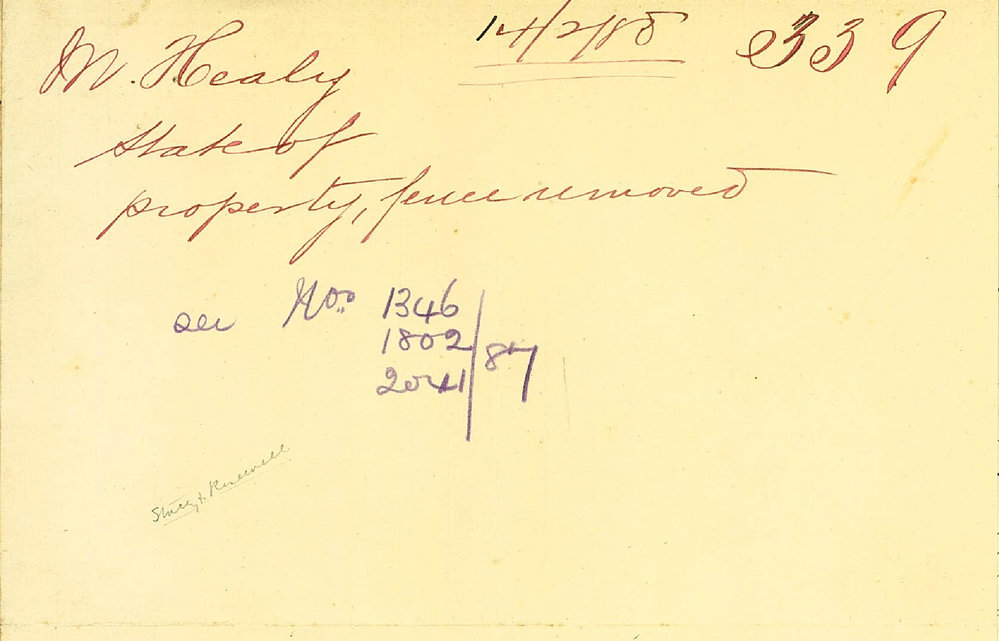 M. Healy 14/2/88 339
State of
property, fence removed
see Nos. 1346
1802 /87
2041